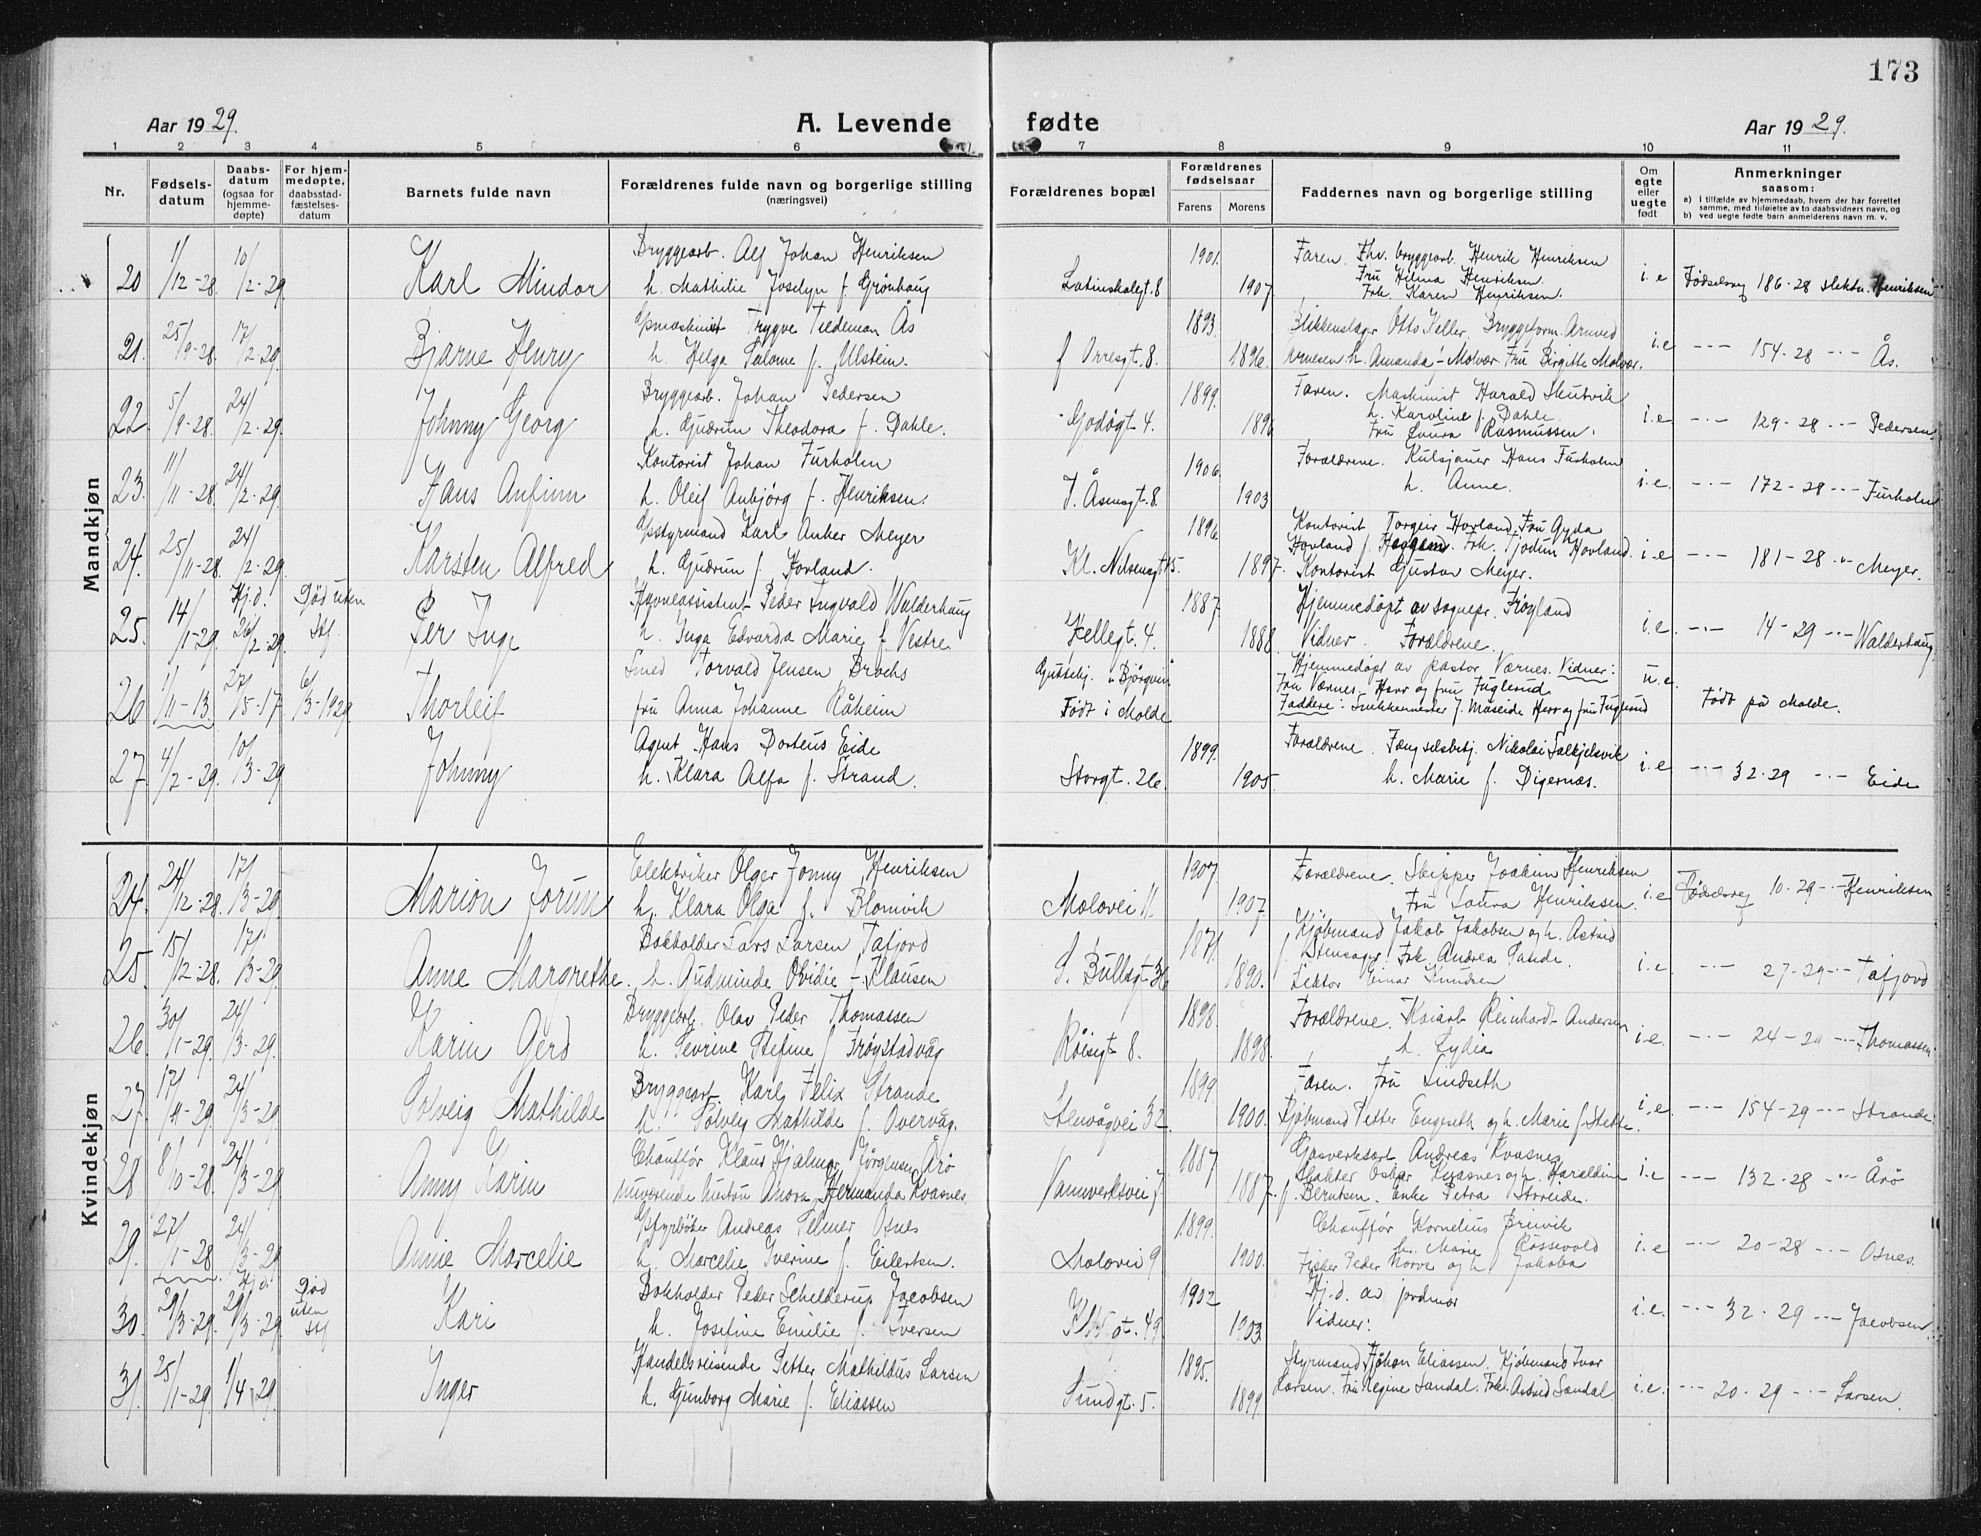 173
Aar 1929. A. Levende fødte Aar 1929.
1 2 3 4 5 6 7 8 9 10 11
Nr. Fødsels-datum Daabs-datum (ogsaa for hjemme-døpte) For hjem-medøpte, daabsstad-fæstelses-datum Barnets fulde navn Forældrenes fulde navn og borgerlige stilling (næringsvei) Forældrenes bopæl Forældrenes fødselsaar Farens Morens Faddernes navn og borgerlige stilling Om egte eller uegte født Anmerkninger saasom:
a) I tilfælde av hjemmedaab, hvem der har forrettet samme, med tilføielse av to daabsvidners navn, og
b) ved uegte fødte barn anmelderens navn m. v.
Mandkjøn
20 1/12-28. 10/2-29. Karl Mindor
Bryggearb. Alf Johan Henriksen
h. Mathilie Joselyn f. Grønhaug
Latinskolegt. 8 1901. 1907.
Faren. Fhv. bryggearb. Henrik Henriksen
Fru Hilma Henriksen.
Frk. Karen Henriksen.
i.e Fødselsreg 186-28 Henriksen
21. 25/9-28. 17/2-29. Bjarne Henry
Trygve Tideman Ås
h. Helga Salome f. Ulstein.
f Orresgt. 8. 1893. 1896.
Blikkenslager Otto Keller. Bryggeform. Arnved
Arnesen h. Amanda - Molvær. Fru Birgitte Molvær.
i.e -"- 154-28 -"- Ås.
22. 5/9-28. 24/2-29. Johnny Georg
Bryggearb. Johan Pedersen
h. Gudrun Theodora f. Dahle.
Godøgt 4. 1899.
Faren. Maskinist Harald Skutvik
h. Karoline f. Dahle.
Fru Laura Rasmussen.
i.e -"- 129-28 -"- Pedersen
23. 11/11-28. 24/2-29. Hans Anfinn
Kontorist Johan Furholm
h. Oleif Anbjørg f. Henriksen.
J. Åsensgt. 8 1906. 1903
Forældrene. Kulsjauer Hans Furholm
h. Anne.
i.e. -"- 172-28 -"- Furholm
24. 25/11-28. 24/2-29. Karsten Alfred
Karl Anker Meyer
h. Gudrun f. Hovland.
Kl. Nilsensgt 15. 1896. 1897.
Kontorist Torgeir Hovland. Fru Gyda
Hovland f. Frk. Hovland.
Kontorist Gustav Meyer.
i.e -"- 181-28 Meyer.
25. 14/1-29. Hj.d. 26/2-29. Død uten Stf. Per Inge
Havneassistent Peder Ingvald Walderhaug
h. Inga Edvarda Marie f. Vestre.
Kellegt. 4. 1887. 1888.
Hjemmedøpt av sognepr. Frøyland
Vidner. Forældrene.
i.e. -"- 14-29 -"- Walderhaug
26 1/11-13. 27/5-17 6/3-1929 Thorleif
Smed Torvald Jensen Brochs
fru Anna Johanne Råheim
"Bjørgvin"
Født i Molde
Hjemmedøpt av pastor Værnes. Vidner:
Fru Værnes. Herr og fru Fuglerud.
Faddere: Snikkermester J. Måseide Herr og fru Fuglerud
u.e. Født på Molde.
27 4/2-29. 10/3-29 Johnny
Agent Hans Dorteus Eide
h. Klara Alfa f. Strand.
Storgt. 26. 1899. 1905.
Forældrene. Fængselsbetj. Nikolai Salkjelsvik
h. Marie f. Digernæs.
i.e -"- 32-29 -"- Eide
Kvindekjøn
24. 24/12-28. 17/3-29. Marion Jorun
Elektriker Olger Jonny Henriksen
h. Klara Olga f. Blomvik
Molovei 11. 1907 1907.
Forældrene. Skipper Joakim Henriksen
Fru Laura Henriksen.
i.e Fødselsreg 10-29 -"- Henriksen
25 15/12-28. 17/3-29. Anne Margrethe.
Bokholder Lars Larsen Tafjord
h. Gudminde Ovidie - Klausen
S. Bullsgt. 36 1871. 1890.
Kjøbmand Jakob Jakobsen og h. Astrid
f. Stensager. Frk. Andrea Sande.
Lektor Einar Knudsen
i.e. -"- 27-29 -"- Tafjord
26. 30/1-29. 24/3-29. Karin Gerd
Bryggearb. Olav Peder Thomassen
h. Severine Stefine f. Frøystadvåg
Røisgt 8. 1898. 1898.
Forældrene. Kaiarb Reinhardt Andersen
h. Lydia
i-e. -"- 24-29 -"- Thomassen.
27. 17/11-29. 24/3-29 Solveig Mathilde
Bryggearb. Karl Felix Strande
h. Solveig Mathilde f. Overvåg.
Stenvågvei 32. 1899 1900.
Faren. Fru Lindseth
Kjøbmand Petter Engeseth og h. Marie f. Stette.
i.e. -"- 154-29 -"- Strande.
28 8/10-28. 24/3-29 Anny Karin
Chauffør Klaus Hjalmar Jørgensen Årø
nuværende hustru Anora Hermanda Kvasnes.
Vannverksvei 7. 1887 1887.
Gasverksarb Andreas Kvasnes
Slakter Oskar Kvasnes og h. Haraldine
f. Berntsen. Enke Petra Streide.
i.e -"- 132-28 -"- Årø
29. 27/1-28 24/3-29 Annie Marcelie
Andreas Selmer Osnes
h. Marcelie Iverine f. Eilertsen.
Molovei 9 1899. 1900.
Chauffør Kornelius Breivik
h. Marie f. Rossevold
Fisker Peder Norve og h. Jakoba
i.e -"- 20-28 -"- Osnes.
30. 29/3-29. Hj.d. 29/3-29. Død uten Stf Kari
Bokholder Peder Schelderup Jacobsen
h. Josefine Emilie f. Iversen
gt. 49 1902 1903.
Hj.d. av jordmor
Vidner:
i.e. -"- 32-29 -"- Jacobsen.
31. 25/1-29. 1/4-29. Inger
Handelsreisende Petter Mathildus Larsen
h. Gunborg Marie f. Eliassen
Sundgt. 5. 1895. 1899
Styrmand Johan Eliassen. Kjøbmand Ivar
Larsen. Fru Regine Sandal. Frk. Astrid Sandal.
i.e. -"- 20-29 -"- Larsen.